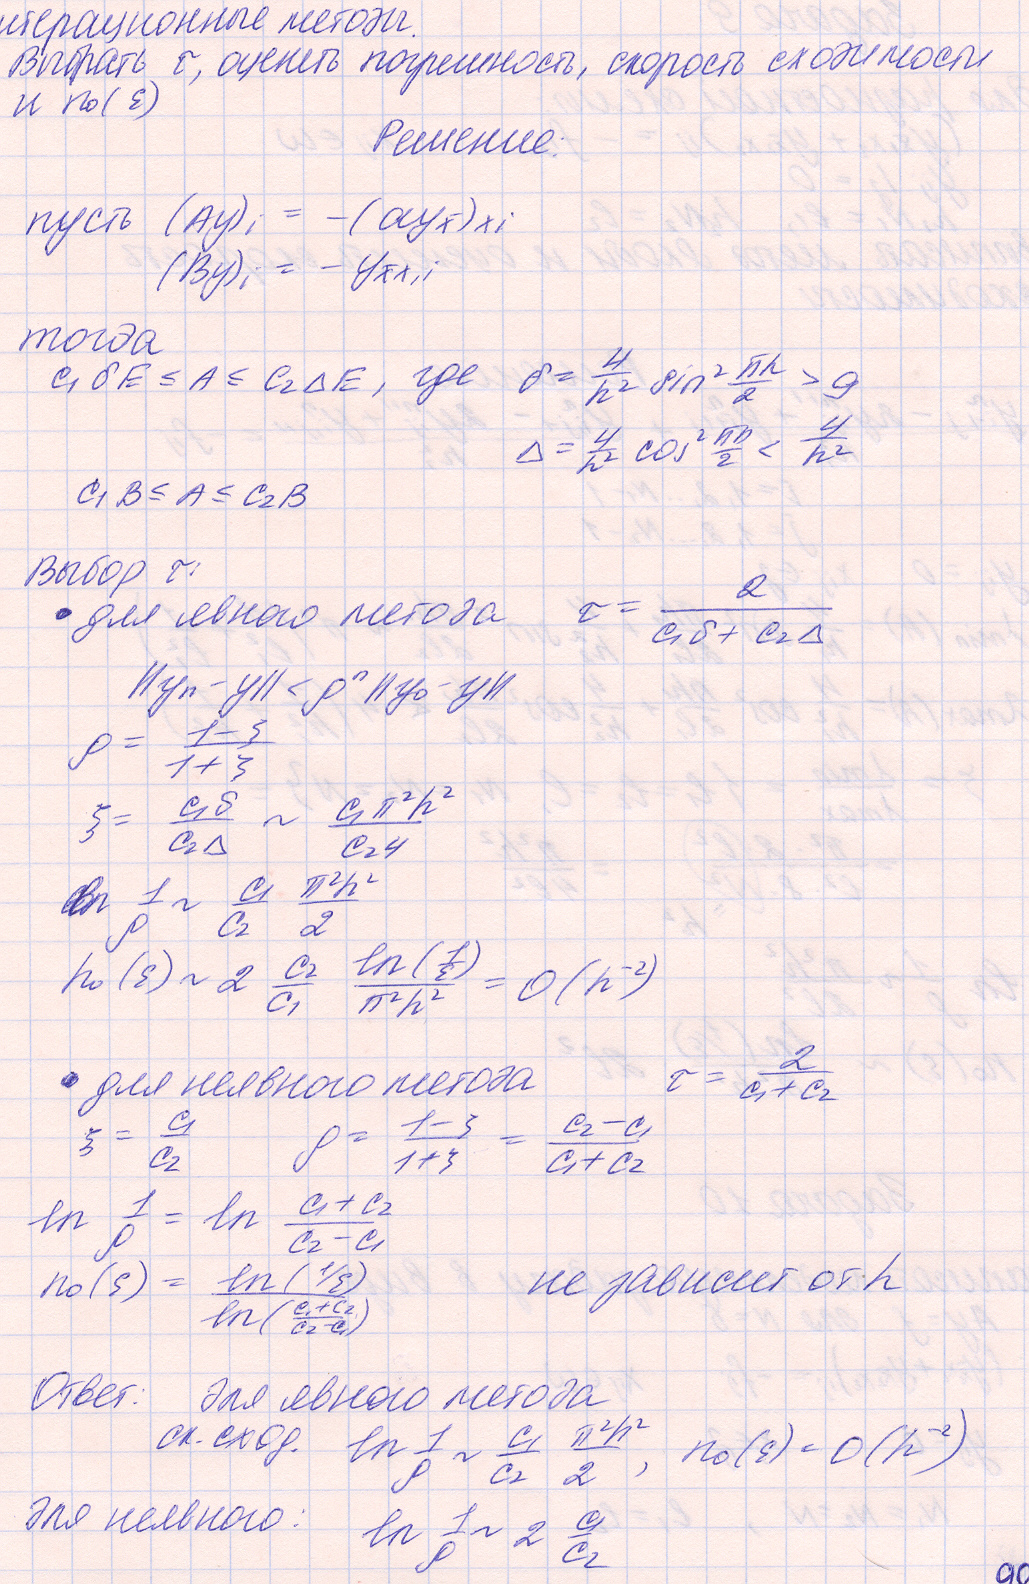 итерационные методы.
Выбрать τ, оценить погрешность, скорость сходимости
и n₀(ε)
Решение:
пусть (Ay)ᵢ = -(ayx̄)xᵢ
(By)ᵢ = - yx̄x,ᵢ
тогда
c₁δE ≤ A ≤ c₂ΔE, где δ = 4/h² sin² πh/2 > 9
Δ = 4/h² cos² πh/2 < 4/h²
c₁B ≤ A ≤ c₂B
Выбор τ:
• для явного метода τ = 2/(c₁δ + c₂Δ)
||yn - y|| < ρⁿ ||y₀ - y||
ρ = (1-ξ)/(1+ξ)
ξ = c₁δ/c₂Δ ~ c₁π²h²/c₂4
ln 1/ρ ~ c₁/c₂ π²h²/2
n₀(ε) ~ 2 c₂/c₁ ln(1/ε)/π²h² = O(h⁻²)
• для неявного метода τ = 2/(c₁+c₂)
ξ = c₁/c₂ ρ = (1-ξ)/(1+ξ) = (c₂-c₁)/(c₁+c₂)
ln 1/ρ = ln (c₁+c₂)/(c₂-c₁)
n₀(ε) = ln(1/ε)/ln((c₁+c₂)/(c₂-c₁)) не зависит от h
Ответ: для явного метода
ск. сход. ln 1/ρ ~ c₁/c₂ π²h²/2, n₀(ε) = O(h⁻²)
для неявного: ln 1/ρ ~ 2 c₁/c₂